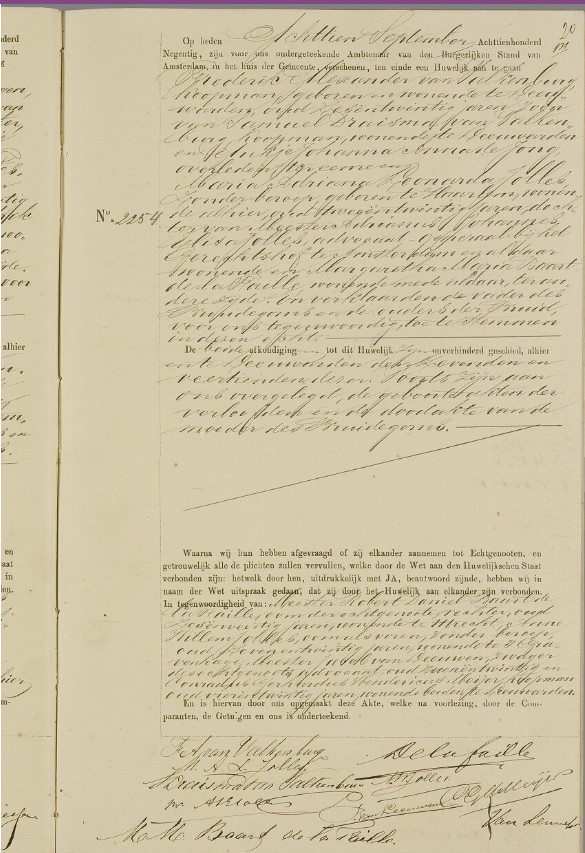 20
Op heden Achttien September Achttienhonderd
Negentig, zijn voor ons ondergeteekende Ambtenaar van den Burgerlijken Stand van
Amsterdam, in het huis der Gemeente, verschenen, ten einde een Huwelijk aan te gaan
Frederik Alexander van Valkenburg
koopman, geboren en wonende te Leeu-
warden, oud zesentwintig jaren, zoon
van Samuel Draisma van Valken-
burg, koopman, wonende te Leeuwarden
en Johanna Anna de Jong,
overleden,
Maria Adriana Leonarda Jolles
zonder beroep, geboren te Haarlem, wonen-
No. 2254
de alhier, oud twintig jaren, doch-
ter van Meester Adrianus Johannes
Jolles, advocaat-generaal bij het
Gerechtshof te Amsterdam en aldaar
wonende en Margaretha Maria Baart
de la Faille, wonende mede aldaar, ter an-
dere zijde. En verklaarden de vader des
Bruidegoms en de ouders der Bruid,
voor ons tegenwoordig, toe te stemmen
in dezen echt.
De beide afkondigingen tot dit Huwelijk zijn onverhinderd geschied, alhier
en te Leeuwarden den zevenden en
veertienden dezer. Voorts zijn aan
ons overgelegd, de geboorteakten der
verloofden en de doodakte van de
moeder des Bruidegoms.
Waarna wij hun hebben afgevraagd of zij elkander aannemen tot Echtgenooten, en
getrouwelijk alle de plichten zullen vervullen, welke door de Wet aan den Huwelijkschen Staat
verbonden zijn: hetwelk door hen, uitdrukkelijk met JA, beantwoord zijnde, hebben wij in
naam der Wet uitspraak gedaan, dat zij door het Huwelijk aan elkander zijn verbonden.
In tegenwoordigheid van: Meester Robert Daniel Baart de
la Faille, oom der echtgenoote, rechter, oud
zesenveertig jaren, wonende te Utrecht,
Willem Jolles, oom zonder beroep,
oud jaren, wonende te 's Gra-
venhage, Meester van Leeuwen, zwager
des echtgenoots, advocaat, oud en
Gerhardus Hendericus Meijer, koopman
oud vierentwintig jaren, wonende beiden te Leeuwarden.
En is hiervan door ons opgemaakt deze Akte, welke na voorlezing, door de Com-
paranten, de Getuigen en ons is onderteekend.
F A van Valkenburg
M. A. L. Jolles
de la Faille
Draisma van Valkenburg
Jolles
van Leeuwen
Meijer
M. M. Baart de la Faille.
Van Lennep